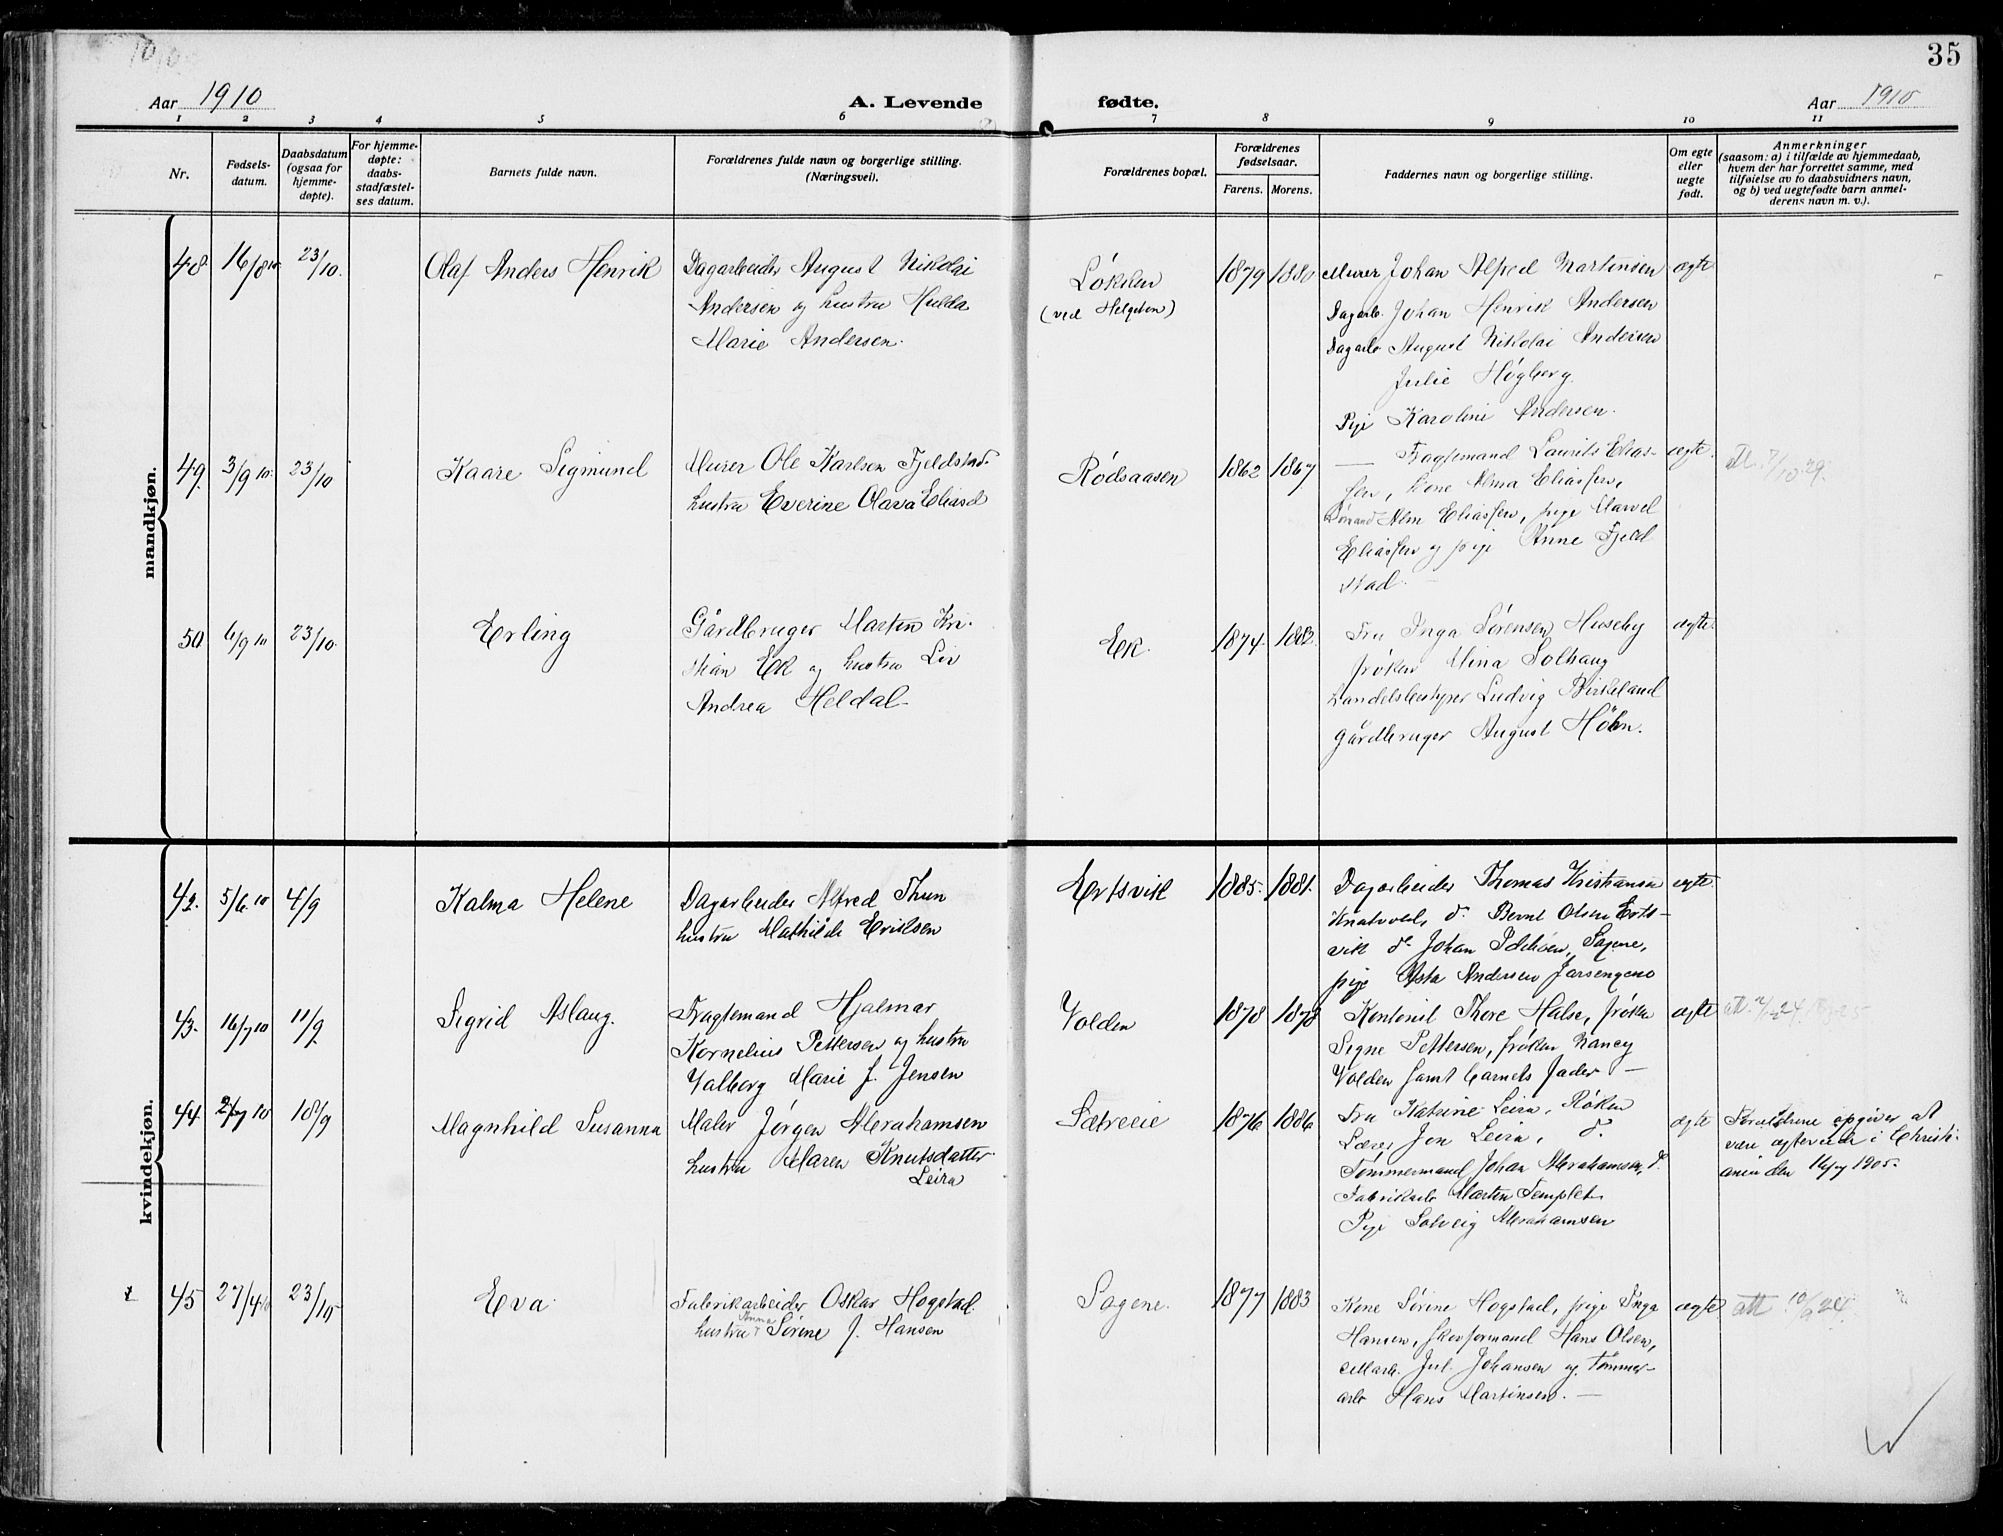 35
Aar 1910
A. Levende fødte.
Aar 1910
1 2 3 4 5 6 7 8 9 10 11
Nr.
Fødsels-
datum.
Daabsdatum
(ogsaa for
hjemme-
døpte).
For hjemme-
døpte:
daabs-
stadfæstel-
ses datum.
Barnets fulde navn.
Forældrenes fulde navn og borgerlige stilling.
(Næringsvei).
Forældrenes bopæl.
Forældrenes
fødselsaar.
Farens. Morens.
Faddernes navn og borgerlige stilling.
Om egte
eller
uegte
født.
Anmerkninger
(saasom: a) i tilfælde av hjemmedaab,
hvem der har forrettet samme, med
tilføielse av to daabsvidners navn,
og b) ved uegtefødte barn anmel-
derens navn m. v.).
mandkjøn.
48 16/8 10 23/10.
Olaf Anders Henrik
Dagarbeider August Nikolai
Andersen og hustru Hulda
Marie Andersen.
Løkken
(ved Helgeben)
1879 1880
Murer Johan Alfred Martinsen
Dagarb. Johan Henrik Andersen
Dagarb August Nikolai Andersen
Julie Høgberg.
Pige Karoline Andersen.
ægte
49. 3/9 10. 23/10
Kaare Sigmund
Murer Ole Karlsen Fjeldstad.
hustru Everine Olava Eliasd
Rødsaasen
1862 1867
Fragtemand Laurits Elias-
sen, Kone Alma Eliassen,
Alm Eliassen, pige
Eliassen og pige Anne Fjeld
stad.
ægte.
att. 7/10 29.
50 6/9 10 23/10.
Erling
Gårdbruger Marten Kri-
stian Ek og hustru Liv
Andrea Heldal
Ek.
1874. 1882.
Fru Inga Sørensen Huseby
frøken Mina Solhaug
Handelsbestyrer Ludvig Birkeland
Gårdbruger August Höhn.
ægte.
kvindekjøn.
42. 5/6. 10 4/9
Kalma Helene
Dagarbeider Alfred Thun
hustru Mathilde Eriksen
Ertsvik
1885. 1881.
Dagarbeider Thomas Kristiansen
Knatvold, do. Bernt Olsen Erts-
vik do. Johan Sagene,
pige Asta Andersen
ægte.
43. 16/7 10 11/9.
Sigrid Aslaug.
Fragtemand Hjalmar
Kornelius Pettersen og hustru
Valborg Marie f. Jensen
Volden
1878 1878
Kontorist Thore Halse, frøken
Signe Pettersen, frøken Nancy
Volden samt barnets fader —
ægte
44. 10 18/9
Magnhild Susanna
Maler Jørgen Abrahamsen
hustru Maren Knutsdatter
Leira
Sætreeie
1876 1886
Fru Katrine Leira, Røken
Lærer Jon Leira, do.
Tømmermand Johan Abrahamsen, d.
Fabrikarb Marten Templet
Pige Solveig Abrahamsen
ægte
Forældrene opgiver at
være ægteviede i Christi-
ania den 16/7 1905.
45 27/4 10 23/10
Eva.
Fabrikarbeider Oskar Hogstad.
hustru Anna Sørine f. Hansen
Sagene.
1877 1883
Kone Sørine Hogstad, pige Inga
Hansen, skovformand Hans Olsen,
Jul. Johansen og Tømmer-
arb Hans Martinsen. —
ægte
att 10/2 24.